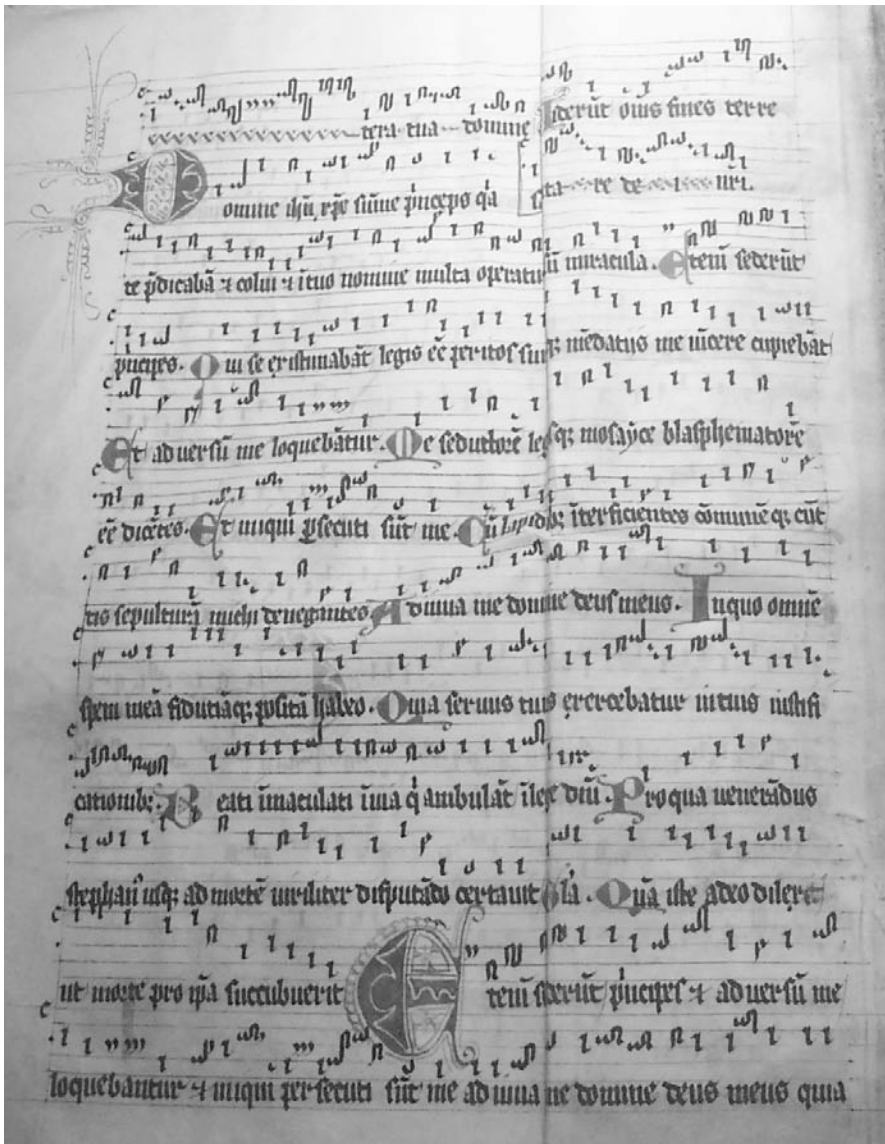 tera tua domine iderūt om̄s fines terre
Domine ihū xp̄e sūme p̄nceps q̄a sta re de nr̄i.
te p̄dicabā ⁊ colui ⁊ ītuo nomine multa operatus sū miracula. Etenī sederūt
p̄ncipes. Qui se existimabāt legis eē peritos suisq; mēdatiis me uīcere cupiebāt
Et aduersū me loquebātur. Me seductorē legisq; mosayce blasphematorē
eē dicētes. Et iniqui p̄secuti sūt me. Cū lapidib; īterficientes cōmunēq; cūt
tis sepulturā michi denegantes Adiuua me domine deus meus. In quo omnē
spem meā fiduciāq; positā habeo. Quia seruus tuus exercebatur intuis iustifi
cationib;. Beati īmaculati īuia q̄ ambulāt īlege dnī. Pro qua uenerādus
stephan' usq; ad mortē uiriliter disputādo certauit Gl̄a. Quā iste adeo dilexit
ut morte pro ip̄a succubuerit Etenī sederūt p̄ncipes ⁊ aduersū me
loquebantur ⁊ iniqui persecuti sūt me adiuua me domine deus meus quia